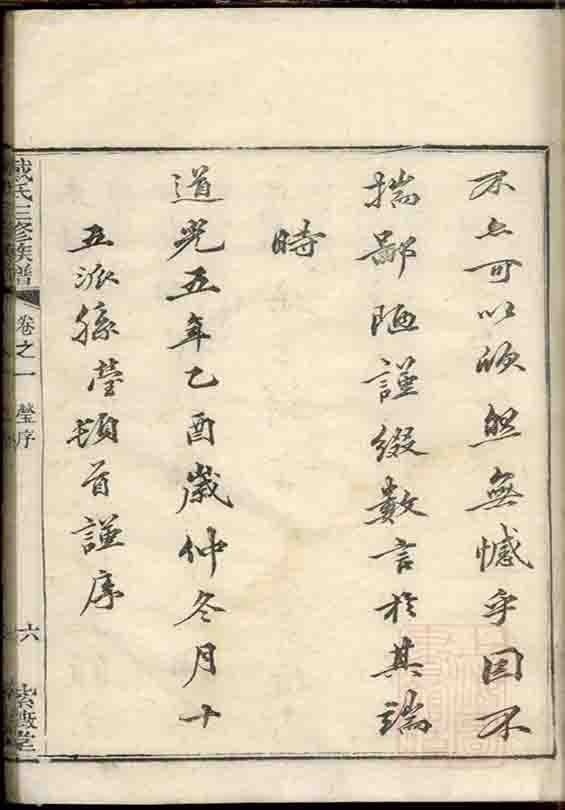 不亦可以欣然無憾乎因不
揣鄙陋謹綴數言於其端
時
道光五年乙酉歲仲冬月十
五派孫瑩頓首謹序
戴氏三修族譜
卷之一
瑩序
六
紫薇堂